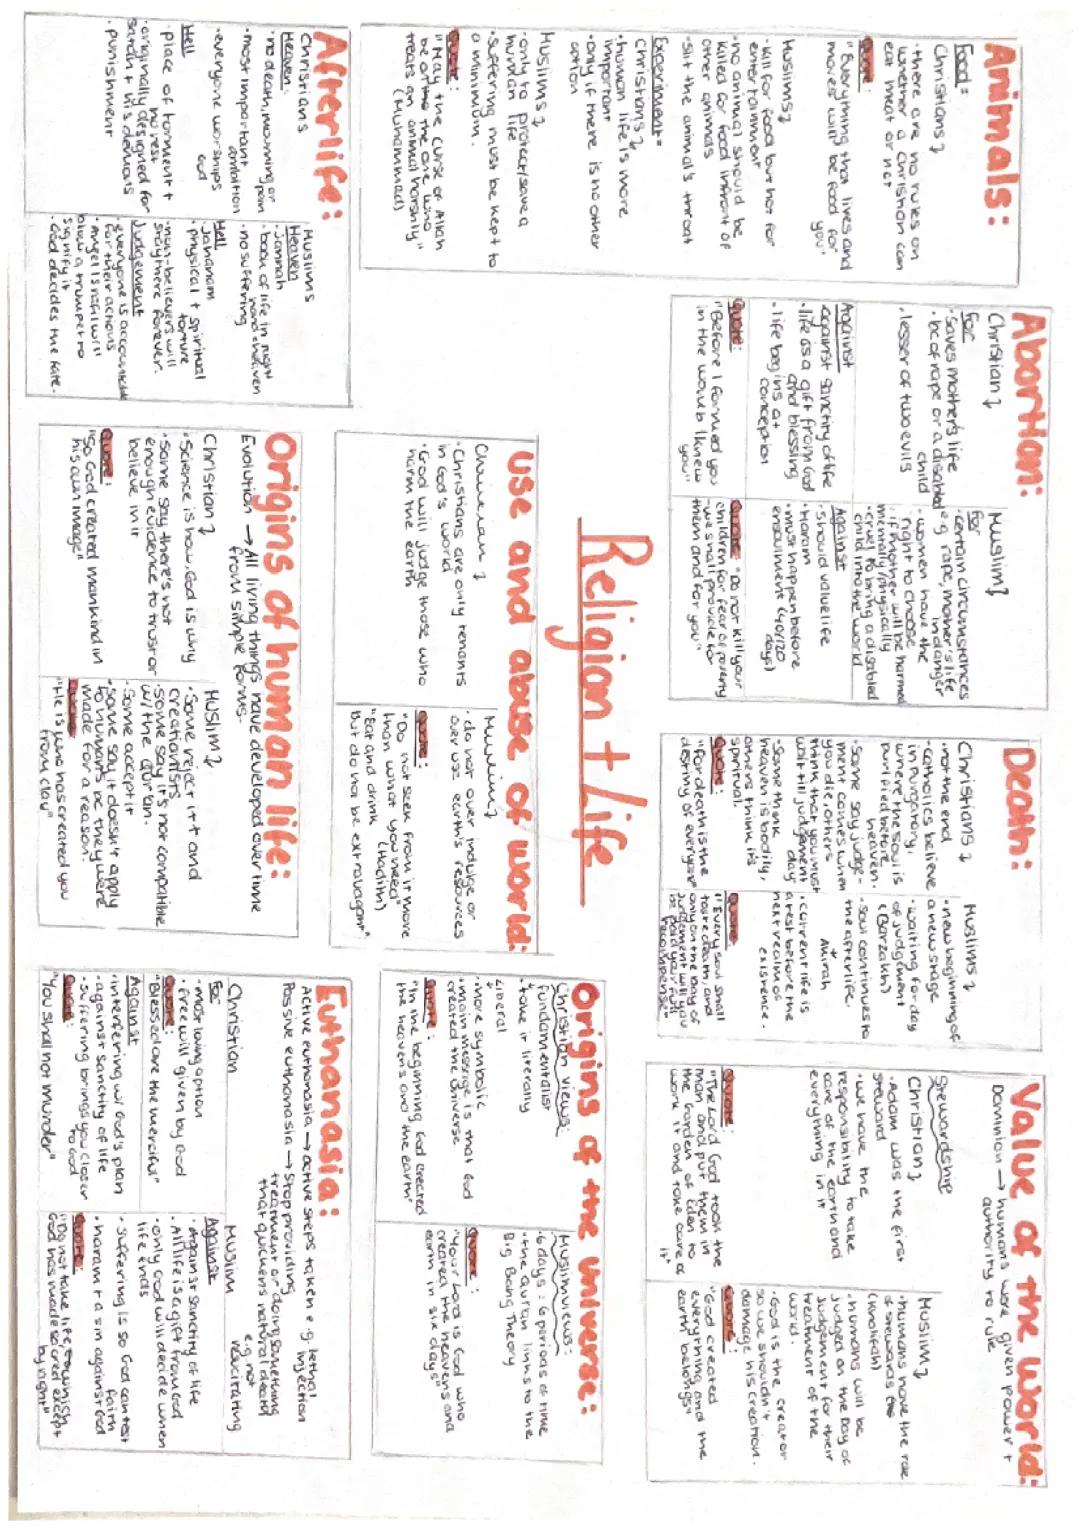 Religion + life
Animals:
Food:
Christians ↴
· there are no rules on
whether a Christian can
eat meat or not
Quote:
"Everything that lives and
moves will be food for
you"
Muslims ↴
· kill for food but not for
entertainment
· no animal should be
killed for food infront of
other animals
· slit the animal's throat
Experiment:
Christians ↴
· human life is more
important
· only if there is no other
option
Muslims ↴
· only to protect/save a
human life
· suffering must be kept to
a minimum.
Quote:
"May the curse of Allah
be on the one who
treats an animal harshly"
(Muhammad)
Abortion:
Christian ↴
For
· saves mother's life
· bc of rape or a disabled
child
· lesser of two evils
Against
· against sanctity of life
· life is a gift from God
and blessing
· life begins at
conception
Quote:
"Before I formed you
in the womb I knew
you"
Muslim ↴
For
· certain circumstances
e.g rape, mother's life
in danger
· women have the
right to choose
· if mother will be harmed
mentally/physically
· cruel to bring a disabled
child into the world
Against
· should value life
· Haram
· must happen before
ensoulment (40/120
days)
Quote: "Do not kill your
children for fear of poverty
- we shall provide for
them and for you"
Death:
Christians ↴
· not the end
· Catholics believe
in Purgatory,
where the soul is
purified before
heaven.
· Some say judge-
ment comes when
you die, others
think that you must
wait till judgement
day
· Some think
heaven is bodily,
others think it's
spiritual.
Quote:
"For death is the
destiny of everyone"
Muslims ↴
· new beginning of
a new stage
· waiting for day
of judgment
(Barzakh)
· Soul continues to
the afterlife.
↓
Akhirah
· current life is
a test before the
next realm of
existence.
Quote:
"Every soul shall
taste death, and
only on the Day of
Judgement will you
be paid your full
recompense"
Value of the world:
Dominion → humans were given power +
authority to rule
Stewardship
Christian ↴
· Adam was the first
steward
· we have the
responsibility to take
care of the earth and
everything in it
Quote:
"The Lord God took the
man and put them in
the Garden of Eden to
work it and take care of
it"
Muslim ↴
· humans have the role
of stewards
(Khalifah)
· humans will be
judged on the Day of
Judgement for their
treatment of the
world.
· God is the creator
so we shouldn't
damage his creation.
Quote:
"God created
everything and the
earth belongs"
Afterlife:
Christians
Heaven:
· no death, mourning or
pain
· most important
ambition
· everyone worships
God
Hell
· place of torment +
no rest
· originally designed for
satan + his demons
· punishment
Muslims
Heaven
· Jannah
· book of life in right
hand → heaven
· no suffering
Hell
· Jahanam
· physical + spiritual
torture
· non-believers will
stay there forever.
Judgement
· everyone is accountable
for their actions
· Angel Israfil will
blow a trumpet to
signify it
· God decides the fate.
Use and abuse of world:
Christian ↴
· Christians are only tenants
in God's world
· God will judge those who
harm the earth
Muslim ↴
· do not over indulge or
over use earth's resources
Quote:
"Do not seek from it more
than what you need"
(Hadith)
"Eat and drink
But do not be extravagant"
Origins of human life:
Evolution → All living things have developed over time
from simple forms.
Christian ↴
· Science is how, God is why
· Some say there's not
enough evidence to trust or
believe in it
Quote:
"So God created mankind in
his own image"
Muslim ↴
· Some reject it + and
creationists
· Some say it's not compatible
w/ the Qur'an.
· Some accept it
· Some say it doesn't apply
to humans bc they were
made for a reason.
Quote:
"He is who has created you
from clay"
Origins of the universe:
Christian views:
fundamentalist
↳ take it literally
Liberal
· more symbolic
· main message is that God
created the universe
Quote:
"In the beginning God created
the heavens and the earth"
Muslim views:
· 6 days = 6 periods of time
· the Qur'an links to the
Big Bang Theory
Quote:
"your Lord is God who
created the heavens and
earth in six days"
Euthanasia:
Active euthanasia → active steps taken e.g lethal
injection
Passive euthanasia → stop providing
treatment or doing something
that quickens natural death
e.g. not
resuscitating
Christian
For
· most loving option
· free will given by God
Quote:
"Blessed are the merciful"
Against
· interfering w/ God's plan
· against sanctity of life
· suffering brings you closer
to God
Quote:
"You shall not murder"
Muslim
Against
· Against sanctity of life
· All life is a gift from God
· only God will decide when
life ends
· suffering is so God can test
faith
· haram + a sin against God
Quote:
"Do not take life, which
God has made sacred except
by right"